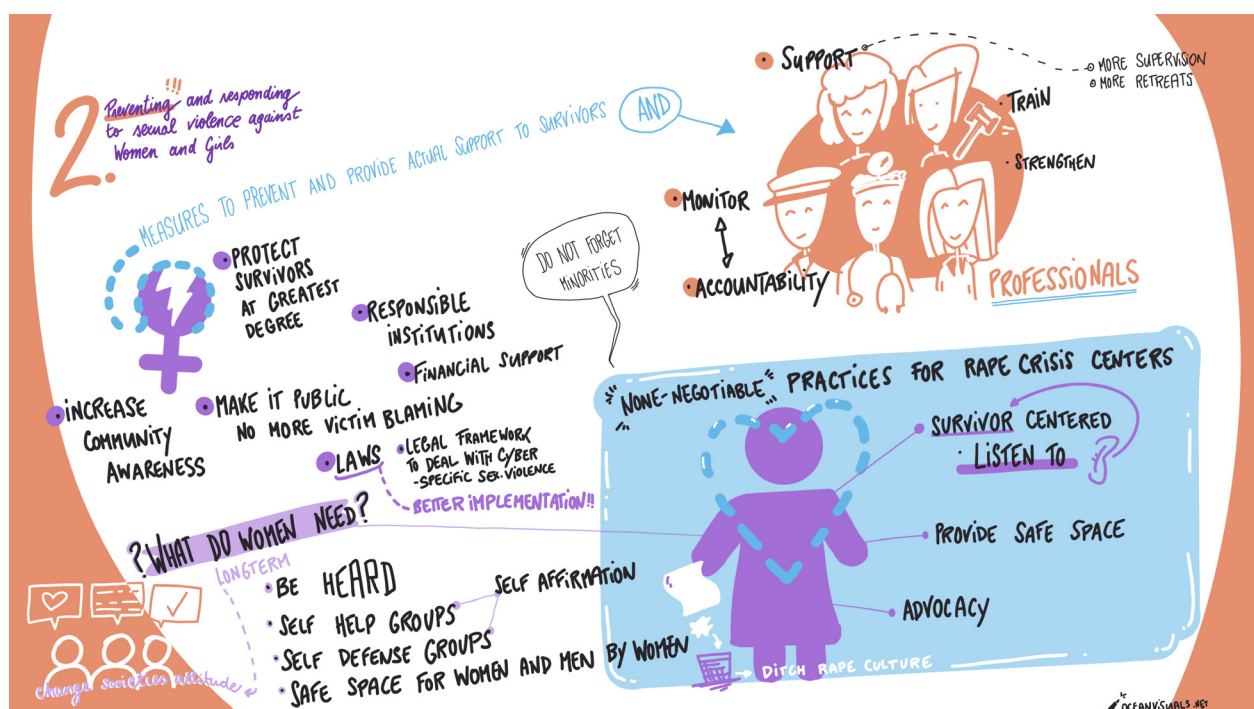 2.
Preventing!!! and responding
to sexual violence against
Women and Girls
MEASURES TO PREVENT AND PROVIDE ACTUAL SUPPORT TO SURVIVORS AND
• PROTECT
SURVIVORS
AT GREATEST
DEGREE
• RESPONSIBLE
INSTITUTIONS
• FINANCIAL SUPPORT
• INCREASE
COMMUNITY
AWARENESS
• MAKE IT PUBLIC
NO MORE VICTIM BLAMING
• LAWS
• LEGAL FRAMEWORK
TO DEAL WITH CYBER
-SPECIFIC SEX.VIOLENCE
BETTER IMPLEMENTATION!!
• SUPPORT
MORE SUPERVISION
MORE RETREATS
• TRAIN
• STRENGTHEN
• MONITOR
• ACCOUNTABILITY
PROFESSIONALS
DO NOT FORGET
MINORITIES
"NONE-NEGOTIABLE" PRACTICES FOR RAPE CRISIS CENTERS
SURVIVOR CENTERED
• LISTEN TO
PROVIDE SAFE SPACE
ADVOCACY
DITCH RAPE CULTURE
?WHAT DO WOMEN NEED?
LONGTERM
change societies attitude
• BE HEARD
• SELF HELP GROUPS
SELF AFFIRMATION
• SELF DEFENSE GROUPS
• SAFE SPACE FOR WOMEN AND MEN BY WOMEN
OCEANVISUALS.NET